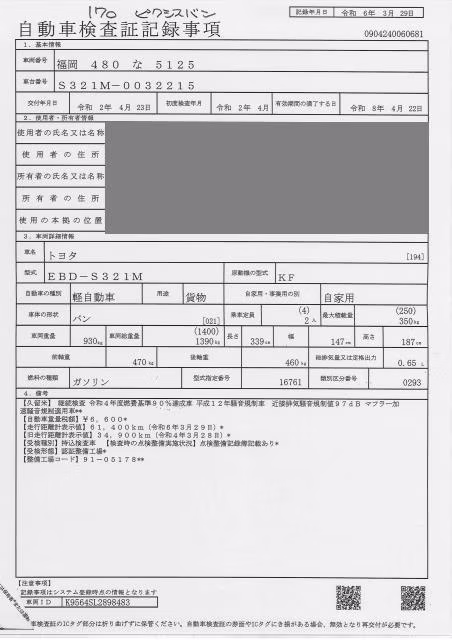 170 ピクシスバン
記録年月日 令和 6年 3月 29日
自動車検査証記録事項
0904240060681
1. 基本情報
車両番号 福岡 480 な 5125
車台番号 S321M-0032215
交付年月日 令和 2年 4月 23日 初度検査年月 令和 2年 4月 有効期間の満了する日 令和 8年 4月 22日
2. 使用者・所有者情報
使用者の氏名又は名称
使用者の住所
所有者の氏名又は名称
所有者の住所
使用の本拠の位置
3. 車両詳細情報
車名 トヨタ [194]
型式 EBD-S321M 原動機の型式 KF
自動車の種別 軽自動車 用途 貨物 自家用・事業用の別 自家用
車体の形状 バン [021] 乗車定員 (4) 2人 最大積載量 (250) 350kg
車両重量 930kg 車両総重量 (1400) 1390kg 長さ 339cm 幅 147cm 高さ 187cm
前軸重 470kg 後軸重 460kg 総排気量又は定格出力 0.65L
燃料の種類 ガソリン 型式指定番号 16761 類別区分番号 0293
4. 備考
【久留米】 継続検査 令和4年度燃費基準90%達成車 平成12年騒音規制車 近接排気騒音規制値97dB マフラー加
速騒音規制適用車**
【自動車重量税額】¥6,600*
【走行距離計表示値】61,400km(令和6年3月29日)*
【旧走行距離計表示値】34,900km(令和4年3月28日)*
【受検種別】持込検査車 【検査時の点検整備実施状況】点検整備記録簿記載あり*
【受検形態】認証整備工場*
【整備工場コード】91-05178**
【注意事項】
記録事項はシステム登録時点の情報となります
車両ID K9564SL2898483
車検査証のICタグ部分は折り曲げずに保管ください。自動車検査証の券面やICタグにき損がある場合、無効となり再交付が必要です。